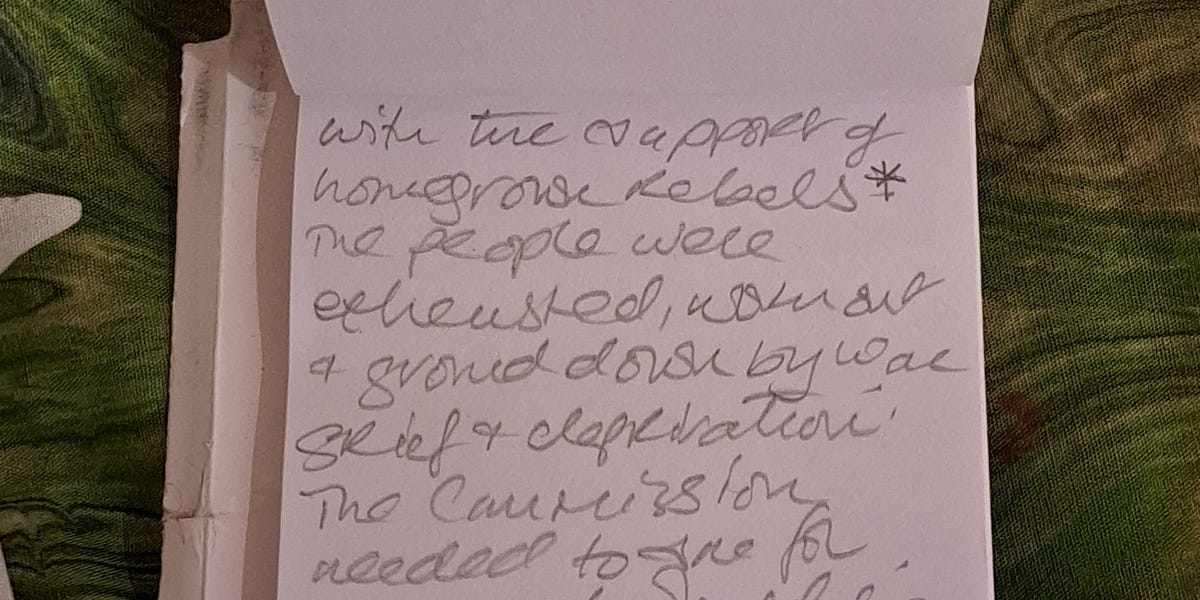 with the support of
homegrown rebels*
The people were
exhausted, worn out
+ ground down by war
grief + deprivation.
The Commission
needed to sue for